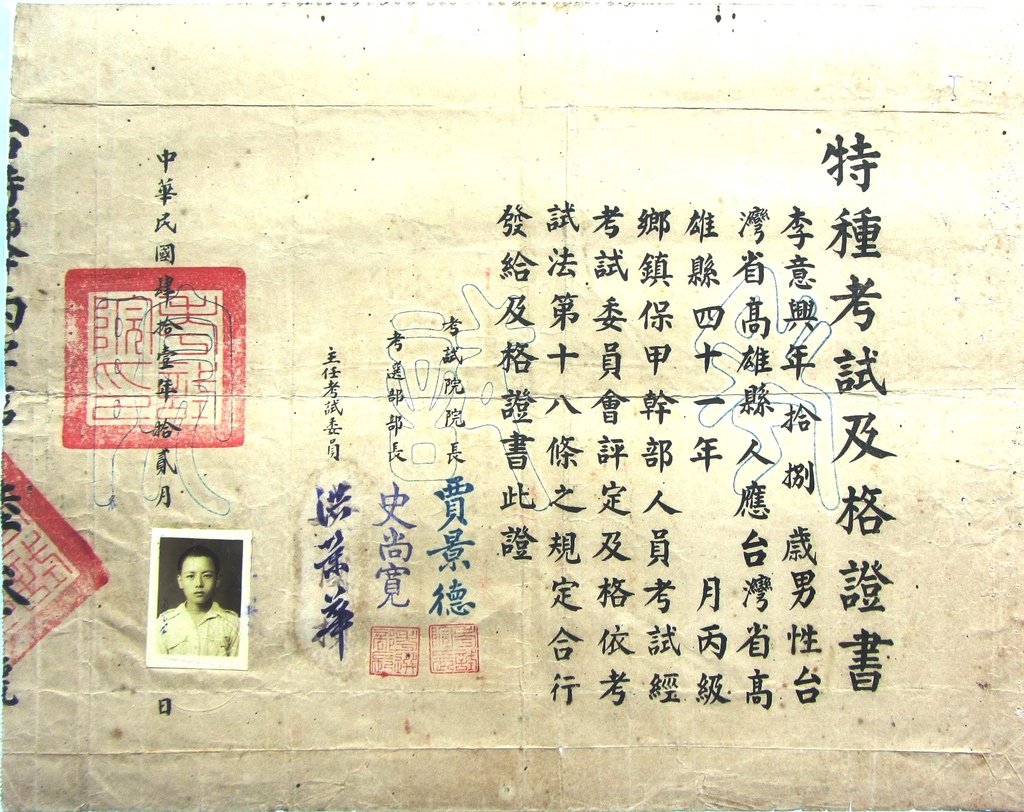 特種考試及格證書
李意興年拾捌歲男性台
灣省高雄縣人應台灣省高
雄縣四十一年 月丙級
鄉鎮保甲幹部人員考試經
考試委員會評定及格依考
試法第十八條之規定合行
發給及格證書此證
考試院院長 賈景德
考選部部長 史尚寬
主任考試委員 洪
中華民國肆拾壹年拾貳月 日
考試院印